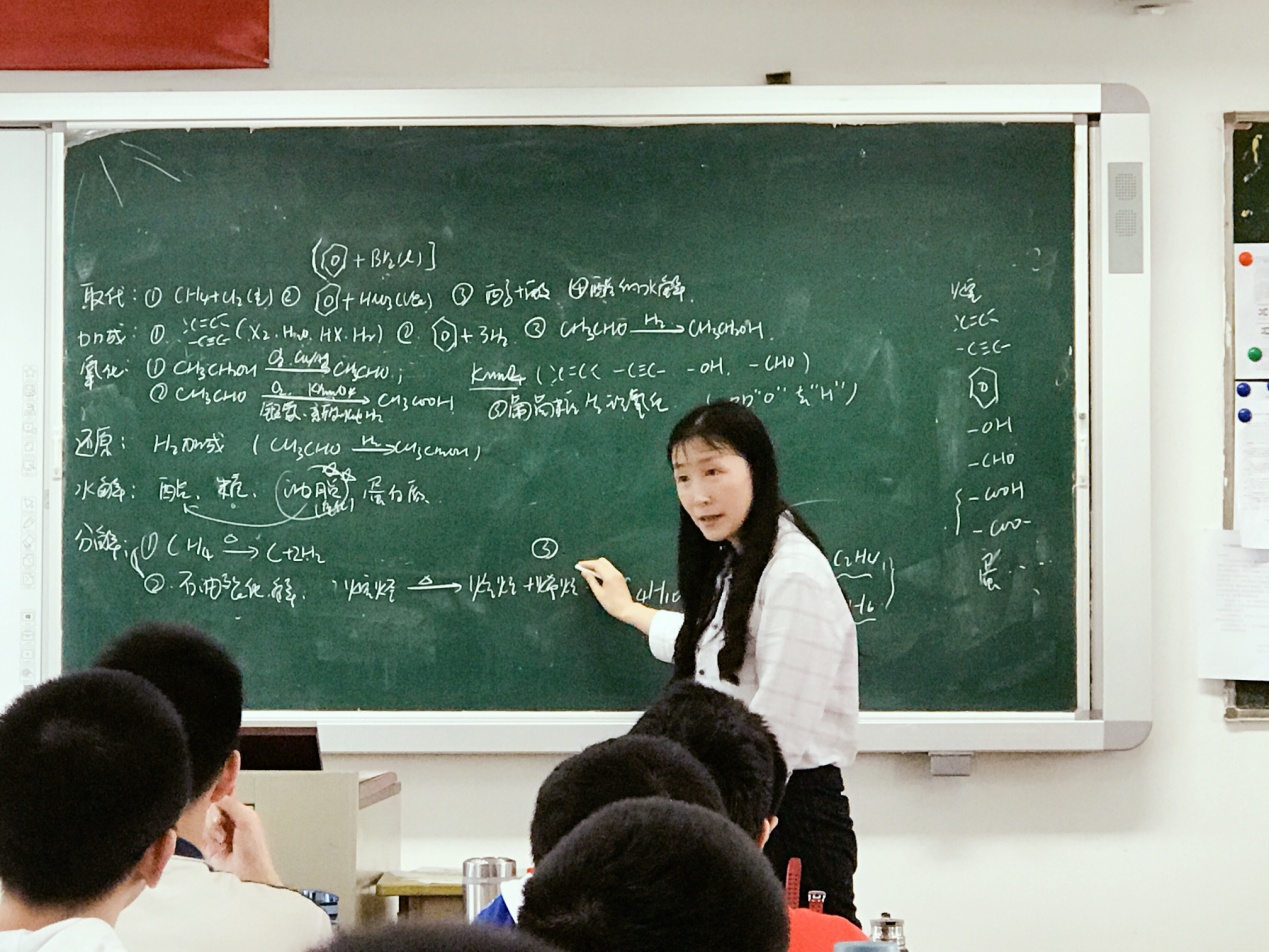 [⌬ + Br₂(l)]
取代: ① CH₄+Cl₂(g) ② ⌬ + HNO₃ ③ 酸 ④ 酯的水解.
加成: ① C=C -C≡C- (X₂, H₂O, HX, H₂) ② ⌬ + 3H₂ ③ CH₃CHO —H₂→ CH₃CH₂OH.
氧化: ① CH₃CH₂OH —O₂, Cu/Ag→ CH₃CHO; KMnO₄ (C=C -C≡C- -OH, -CHO)
② CH₃CHO —O₂, KMnO₄→ CH₃COOH ③ 氧化 ("O" 去"H")
还原: H₂加成 (CH₃CHO —H₂→ CH₃CH₂OH)
水解: 酯、糖、油脂, 蛋白质.
分解: ① CH₄ —△→ C+2H₂ ③
② 石油裂化.解. 烷烃 —△→ 烷烃+烯烃 C₂H₄
烃
C=C
-C≡C-
⌬
-OH
-CHO
-COOH
-COO-
蛋....